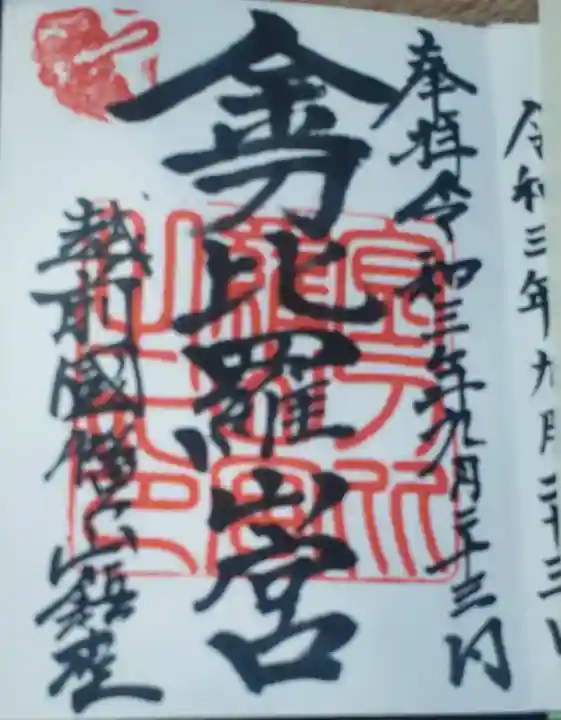 令和三年九月二十三日
奉拝令和三年九月二十三日
金刀比羅山宮
越前國山鎮座